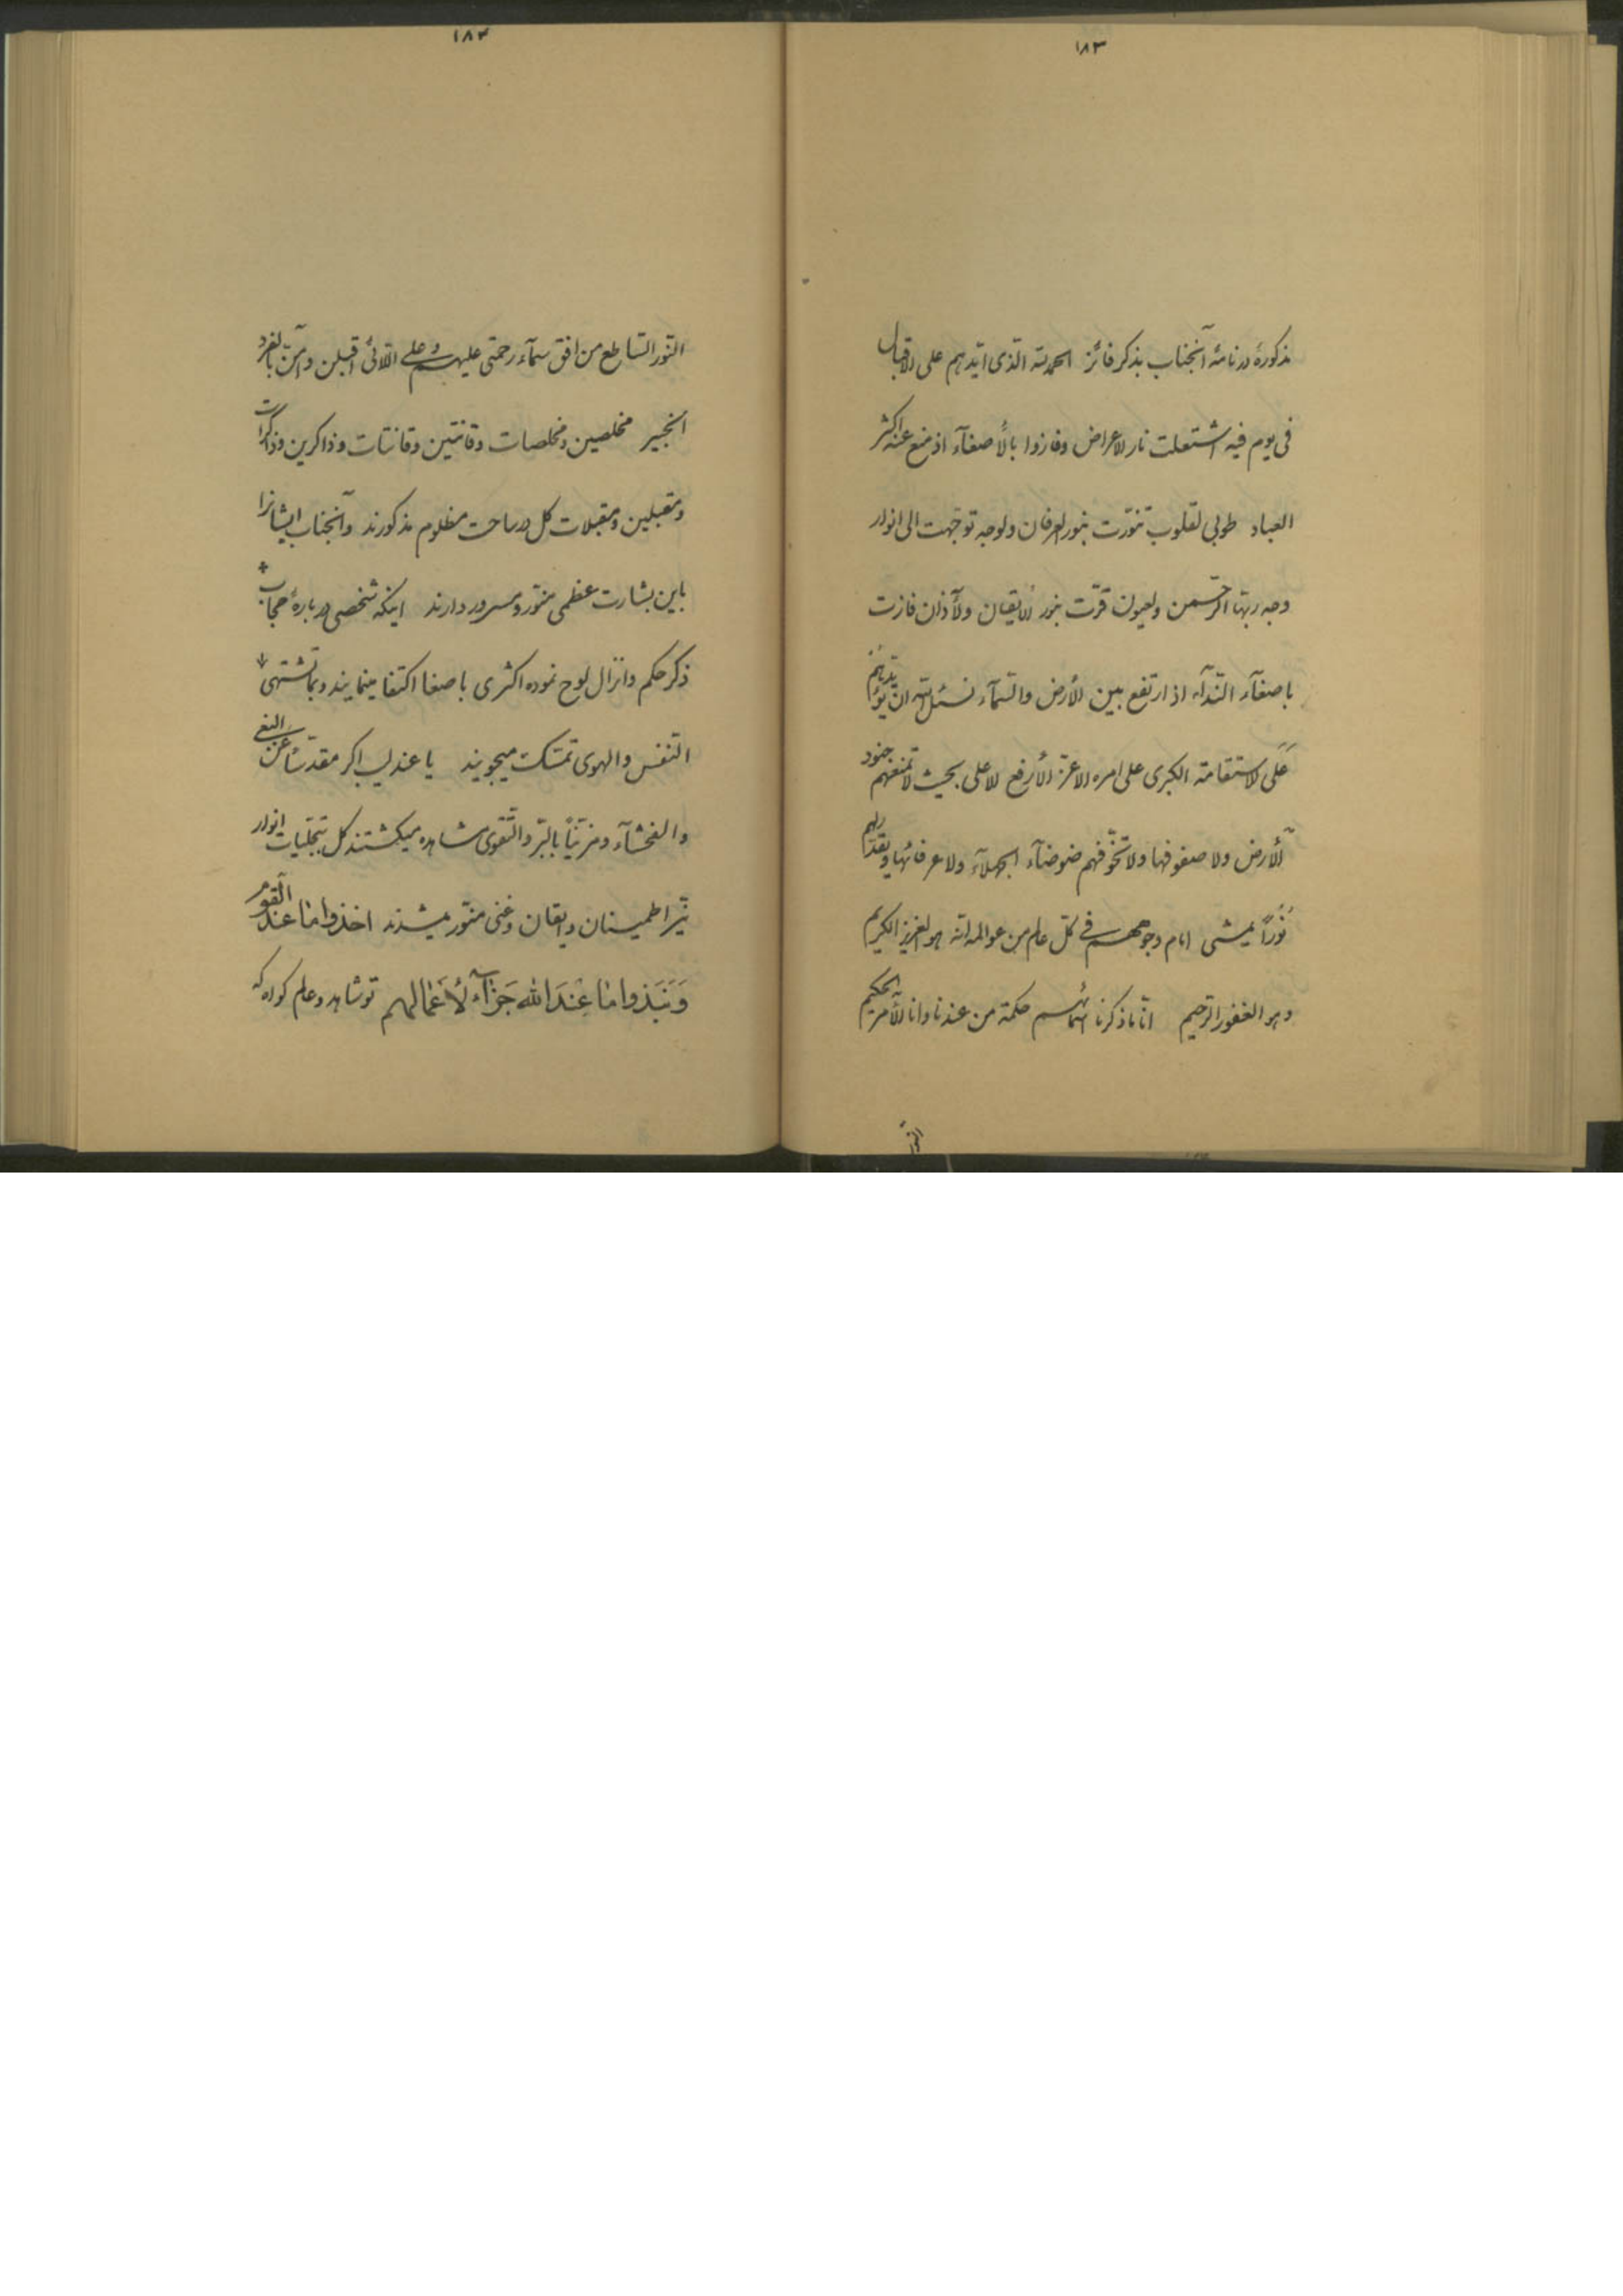 ۱۸۳
مذکورهٔ در نامهٔ آنجناب بذکر فائز الحمد لله الّذی ایّدهم علی الاقبال
فی یوم فیه اشتعلت نار الاعراض وفازوا بالأصغآء اذ منع عنه اکثر
العباد طوبی لقلوب تنوّرت بنور العرفان ولوجه توجّهت الی انوار
وجه ربّها الرّحمن ولعیون قرّت بنور الایقان ولآذان فازت
باصغآء النّدآء اذ ارتفع بین الأرض والسّمآء نسئل الله ان یؤیّدهم
عَلَی الاستقامة الکبری علی امره الاعزّ الأرفع الاعلی بحیث لا تمنعهم جنود
الأرض ولا صفوفها ولا تخوّفهم ضوضآء الجهلآء ولا عرفائها ویقدّر لهم
نُوراً یمشی امام وجوههم فی کلّ عالم من عوالمه انّه هو العزیز الکریم
وهو الغفور الرّحیم انّا ما ذکرنا اسمائهم حکمة من عندنا وانا الآمر الحکیم
النّور
۱۸۴
النّور السّاطع من افق سمآء رحمتی علیهم وعلی اللّائی اقبلن وآمنّ بالفرد
الخبیر مخلصین ومخلصات وقانتین وقانتات وذاکرین وذاکرات
ومقبلین ومقبلات کل در ساحت مظلوم مذکورند وآنجناب ایشانرا
باین بشارت عظمی منوّر ومسرور دارند اینکه شخصی دربارهٔ حجاب
ذکر حکم وانزال لوح نموده اکثری باصغا اکتفا مینمایند وبما تشتهی به
النّفس والهوی تمسّک میجویند یا عندلیب اگر مقدّساً عن البغی
والفحشآء ومزیّناً بالبرّ والتّقوی مشاهده میگشتند کل بتجلّیات انوار
نیّر اطمینان وایقان وغنی منوّر میشدند اخذوا ما عند القوم
وَنَبَذوا ما عِنْدَ الله جَزآءً لأعْمالهم تو شاهد وعالم گواه که